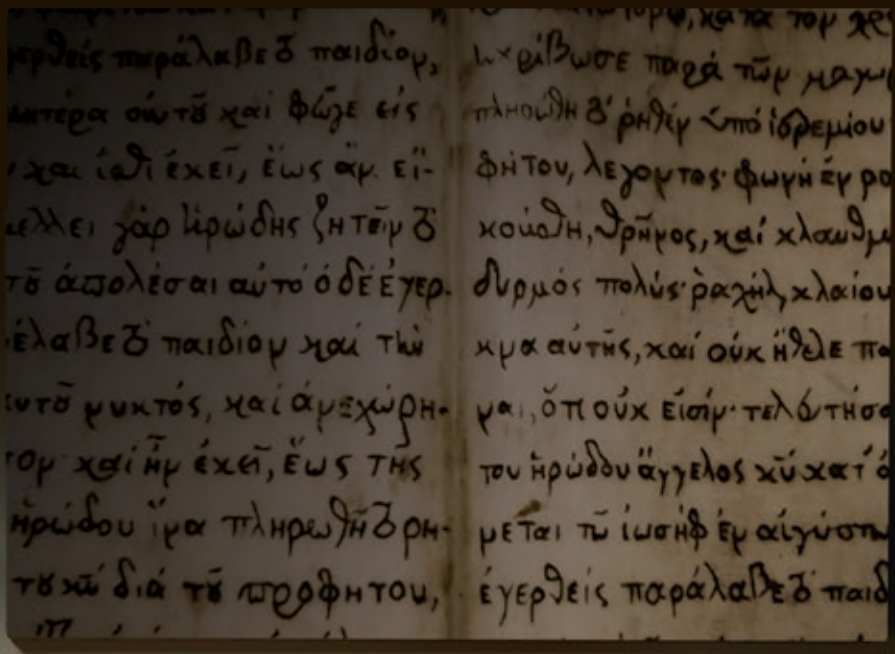 γερθεὶς παράλαβε τὸ παιδίον,
μητέρα αὐτοῦ καὶ φεῦγε εἰς
καὶ ἴσθι ἐκεῖ, ἕως ἄν εἴ-
μέλλει γὰρ ἡρώδης ζητεῖν τὸ
τοῦ ἀπολέσαι αὐτό ὁ δὲ ἐγερ-
έλαβε τὸ παιδίον καὶ τὴν
αυτοῦ νυκτός, καὶ ἀνεχώρη-
τον καὶ ἦν ἐκεῖ, ἕως τῆς
ἡρώδου ἵνα πληρωθῆ τὸ ῥη-
τοῦ κῡ διὰ τοῦ προφήτου,
κατὰ τὸν χρ
κρίβωσε παρὰ τῶν μάγω
πληρώθη τὸ ῥηθὲν ὑπὸ ἱερεμίου
φήτου, λέγοντος· φωνὴ ἐν ρα
κούσθη, θρῆνος, καὶ κλαυθμ
δυρμός πολύς· ῥαχήλ κλαίου
κνα αὐτῆς, καὶ οὐκ ἤθελε πα
ναι, ὅτι οὐκ εἰσίν· τελευτήσα
του ἡρώδου ἄγγελος κῡ κατ ὄ
νεται τῶ ἰωσὴφ ἐν αἰγύπτω
ἐγερθεὶς παράλαβε τὸ παιδ